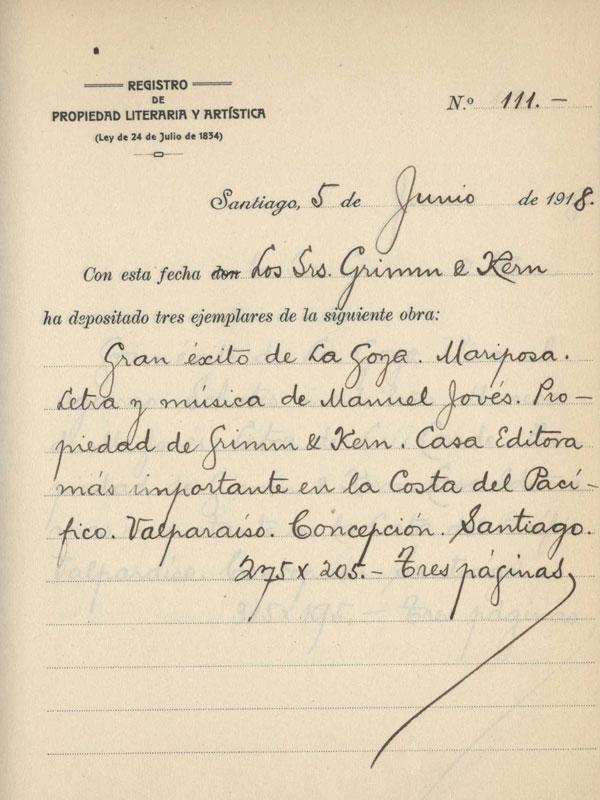 REGISTRO
DE
PROPIEDAD LITERARIA Y ARTÍSTICA
(Ley de 24 de Julio de 1834)
N.º 111.-
Santiago, 5 de Junio de 1918.
Con esta fecha don Los Srs. Grimm & Kern
ha depositado tres ejemplares de la siguiente obra:
Gran éxito de La Goya. Mariposa.
Letra y música de Manuel Jovés. Pro-
piedad de Grimm & Kern. Casa Editora
más importante en la Costa del Pací-
fico. Valparaíso. Concepción. Santiago.
275 x 205.- Tres páginas